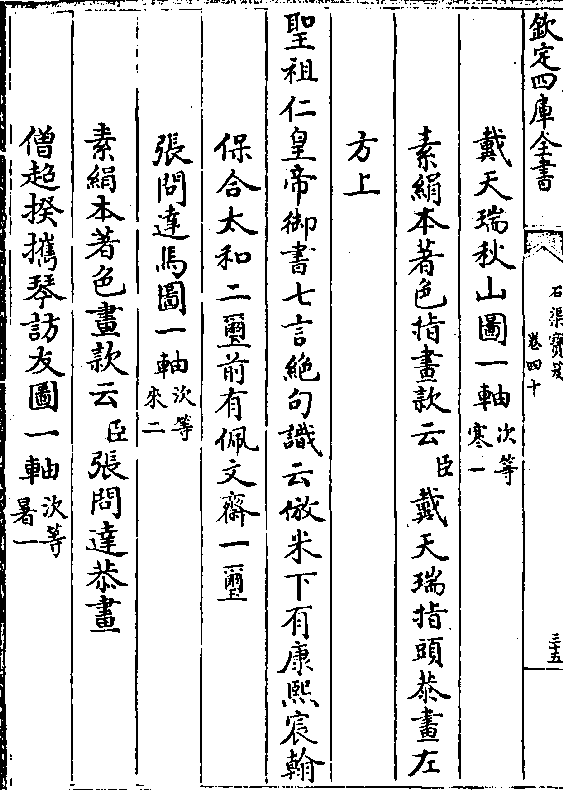 欽定四庫全書
石渠寶笈
卷四十
三十五
戴天瑞秋山圖一軸次等寒一
素絹本著色指畫款云臣戴天瑞指頭恭畫左
方上
聖祖仁皇帝御書七言絶句識云倣米下有康熙宸翰
保合太和二璽前有佩文齋一璽
張問達馬圖一軸次等來二
素絹本著色畫款云臣張問達恭畫
僧超揆攜琴訪友圖一軸次等暑一